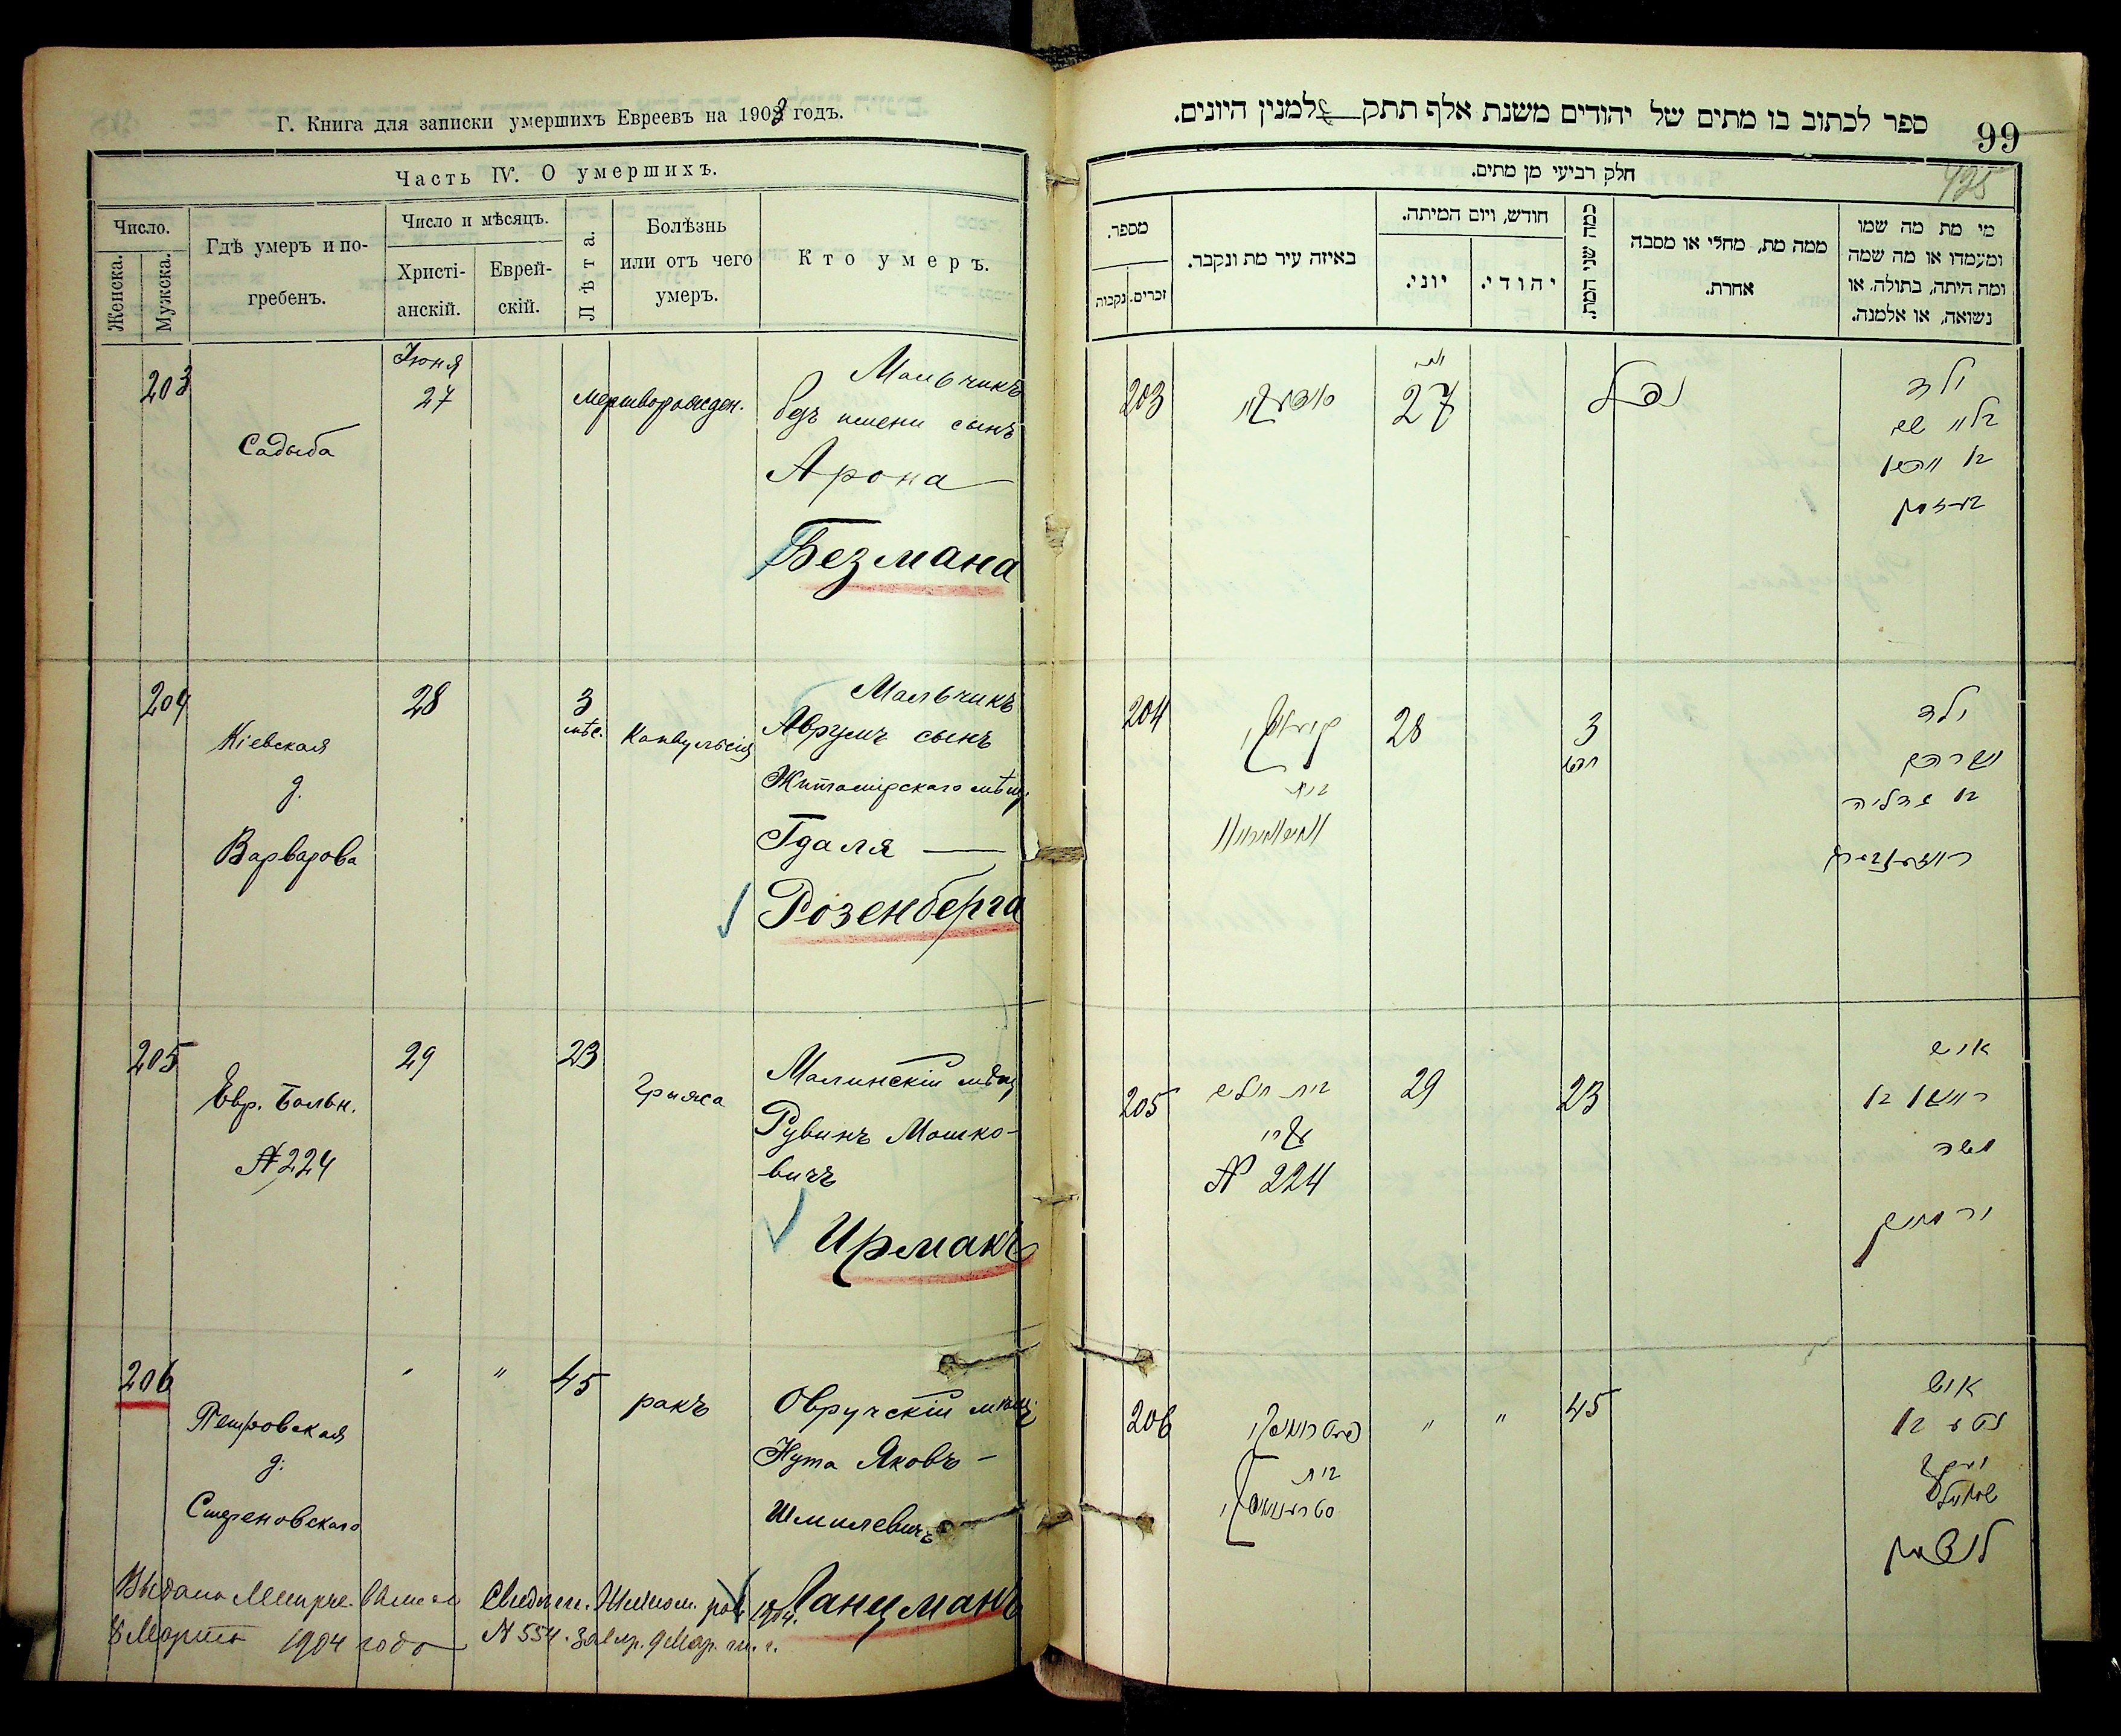 Г. Книга для записки умершихъ Евреевъ на 1903 годъ.
Часть IV. О умершихъ.
Число.
Женска.
Мужска.
Гдѣ умеръ и по-
гребенъ.
Число и мѣсяцъ.
Христі-
анскій.
Еврей-
скій.
Лѣта.
Болѣзнь
или отъ чего
умеръ.
Кто умеръ.
203
Садыба
Іюня
27
мертворожден.
Мальчикъ
безъ имени сынъ
Арона
Безмана
204
Кіевская
д.
Варварова
28
3
мѣс.
Конвульсія
Мальчикъ
Аврумъ сынъ
Житомірскаго мѣщ.
Гдаля
Розенберга
205
Евр. Больн.
№ 224
29
23
грыжа
Малинскій мѣщ.
Рувинъ Мошко-
вичъ
Ирмакъ
206
Петровская
д.
"
"
45
ракъ
Овручскій мѣщ.
Нута Яковъ -
Шмилевичъ
Ланцманъ
Выдано Метрич. Свидѣт. Житом. рав. 1904.
8 Марта 1904 года № 554. 9 Мар.
99
425
ספר לכתוב בו מתים של יהודים משנת אלף תתק למנין היונים.
חלק רביעי מן מתים.
מספר.
זכרים.
נקבות
באיזה עיר מת ונקבר.
חודש, ויום המיתה.
יוני.
יהודי.
כמה שני המת.
ממה מת, מחלי או מסבה
אחרת.
מי מת מה שמו
ומעמדו או מה שמה
ומה היתה, בתולה, או
נשואה, או אלמנה.
203
יוני
27
נפל
ילד
בלי שם
בן אהרן
בעזמאן
204
28
3
חדש
ילד
אברהם
בן גדליה
ראזענבערג
בית
205
בית חולים
№ 224
29
23
איש
ראובן בן
משה
ירמאק
206
בית
"
"
45
איש
נטע בן
יעקב
שמואל
לאנצמאן